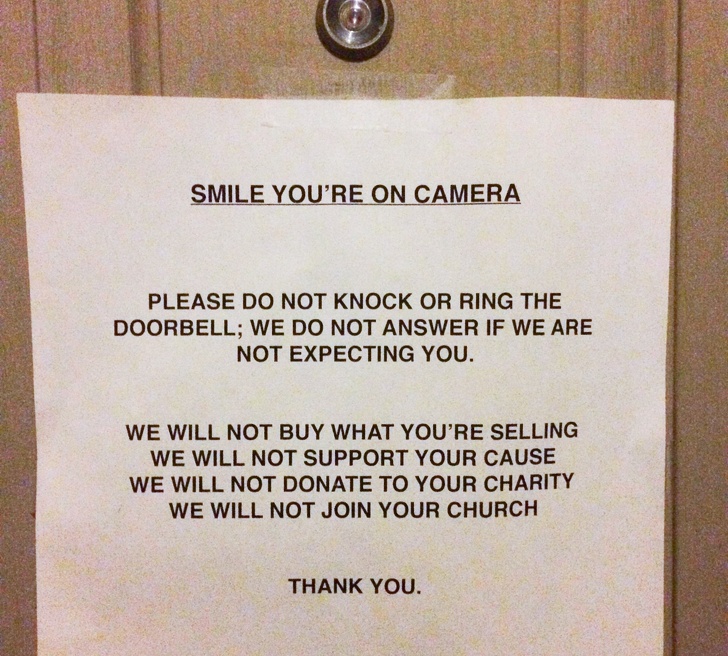 SMILE YOU'RE ON CAMERA
PLEASE DO NOT KNOCK OR RING THE
DOORBELL; WE DO NOT ANSWER IF WE ARE
NOT EXPECTING YOU.
WE WILL NOT BUY WHAT YOU'RE SELLING
WE WILL NOT SUPPORT YOUR CAUSE
WE WILL NOT DONATE TO YOUR CHARITY
WE WILL NOT JOIN YOUR CHURCH
THANK YOU.